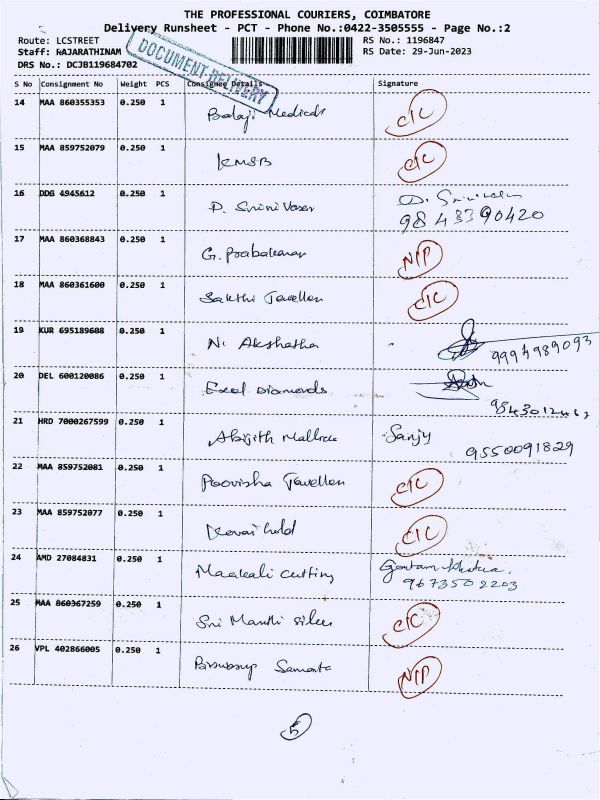 THE PROFESSIONAL COURIERS, COIMBATORE
Delivery Runsheet - PCT - Phone No.:0422-3505555 - Page No.:2
Route: LCSTREET
RS No.: 1196847
Staff: RAJARATHINAM
RS Date: 29-Jun-2023
DRS No.: DCJB119684702
DOCUMENT DELIVERY
S No Consignment No Weight PCS Consignee Details Signature
14 MAA 860355353 0.250 1 Balaji Medicals C/C
15 MAA 859752079 0.250 1 KMSB C/C
16 DDG 4945612 0.250 1 D. Srinivasan D. Srinivasan
9843390420
17 MAA 860368843 0.250 1 G. Prabakaran N/P
18 MAA 860361600 0.250 1 Sakthi Jewellers C/C
19 KUR 695189608 0.250 1 N. Akshatha
9994989093
20 DEL 600120086 0.250 1 Excel Diamonds
21 HRD 7000267599 0.250 1 Abijith Sanjy
9550091829
22 MAA 859752081 0.250 1 Poovisha Jewellers C/C
23 MAA 859752077 0.250 1 Kovai Gold C/C
24 AMD 27084831 0.250 1 Maakali cutting Goutam
9673502203
25 MAA 860367259 0.250 1 Sri Maruthi silver C/C
26 VPL 402866005 0.250 1 Biswarup Samanta N/P
5